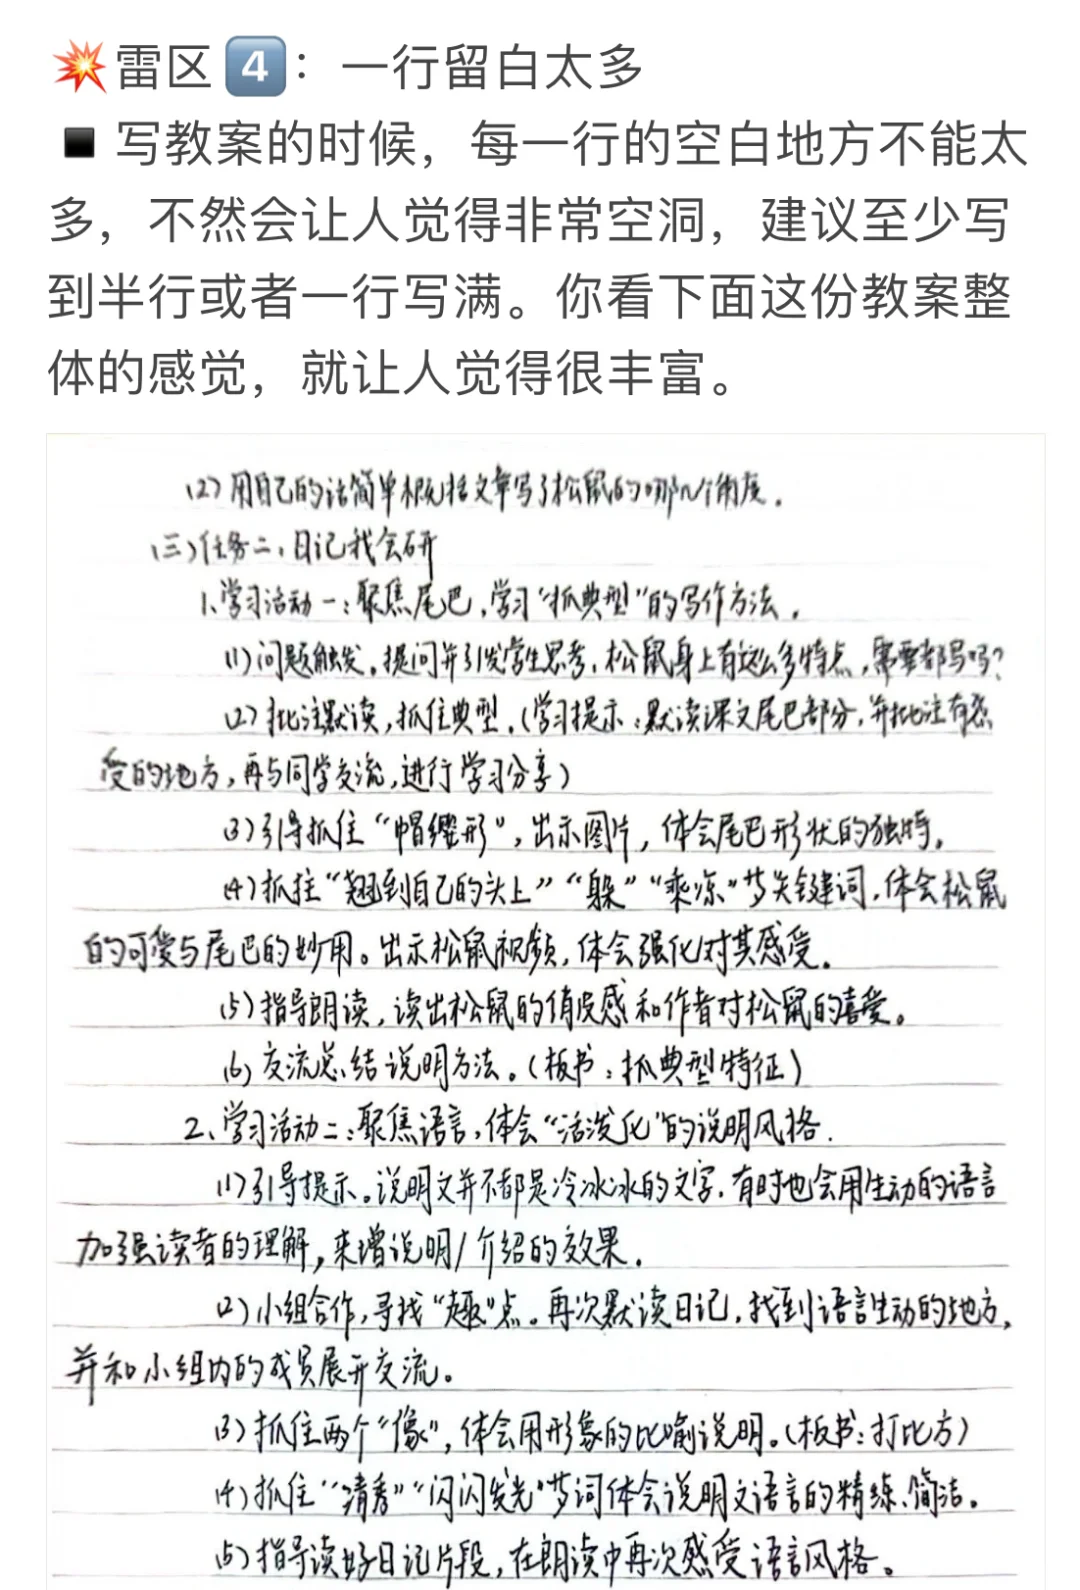 💥雷区4️⃣：一行留白太多
▪️写教案的时候，每一行的空白地方不能太
多，不然会让人觉得非常空洞，建议至少写
到半行或者一行写满。你看下面这份教案整
体的感觉，就让人觉得很丰富。
(2)用自己的话简单概括文章写了松鼠的哪几个角度。
(三)任务二：日记我会研
1、学习活动一：聚焦尾巴，学习“抓典型”的写作方法。
(1)问题触发，提问并引发学生思考，松鼠身上有这么多特点，需要都写吗？
(2)批注默读，抓住典型。(学习提示：默读课文尾巴部分，并批注有感
受的地方，再与同学交流，进行学习分享)
(3)引导抓住“帽缨形”，出示图片，体会尾巴形状的独特。
(4)抓住“翘到自己的头上”“躲”“乘凉”等关键词，体会松鼠
的可爱与尾巴的妙用。出示松鼠视频，体会强化对其感受。
(5)指导朗读，读出松鼠的俏皮感和作者对松鼠的喜爱。
(6)交流总结说明方法。(板书：抓典型特征)
2、学习活动二：聚焦语言，体会“活泼化”的说明风格.
(1)引导提示。说明文并不都是冷冰冰的文字，有时也会用生动的语言
加强读者的理解，来增说明/介绍的效果。
(2)小组合作，寻找“趣”点。再次默读日记，找到语言生动的地方，
并和小组内的成员展开交流。
(3)抓住两个“像”，体会用形象的比喻说明。(板书：打比方)
(4)抓住“清秀”“闪闪发光”等词体会说明文语言的精练、简洁。
(5)指导读好日记片段，在朗读中再次感受语言风格。